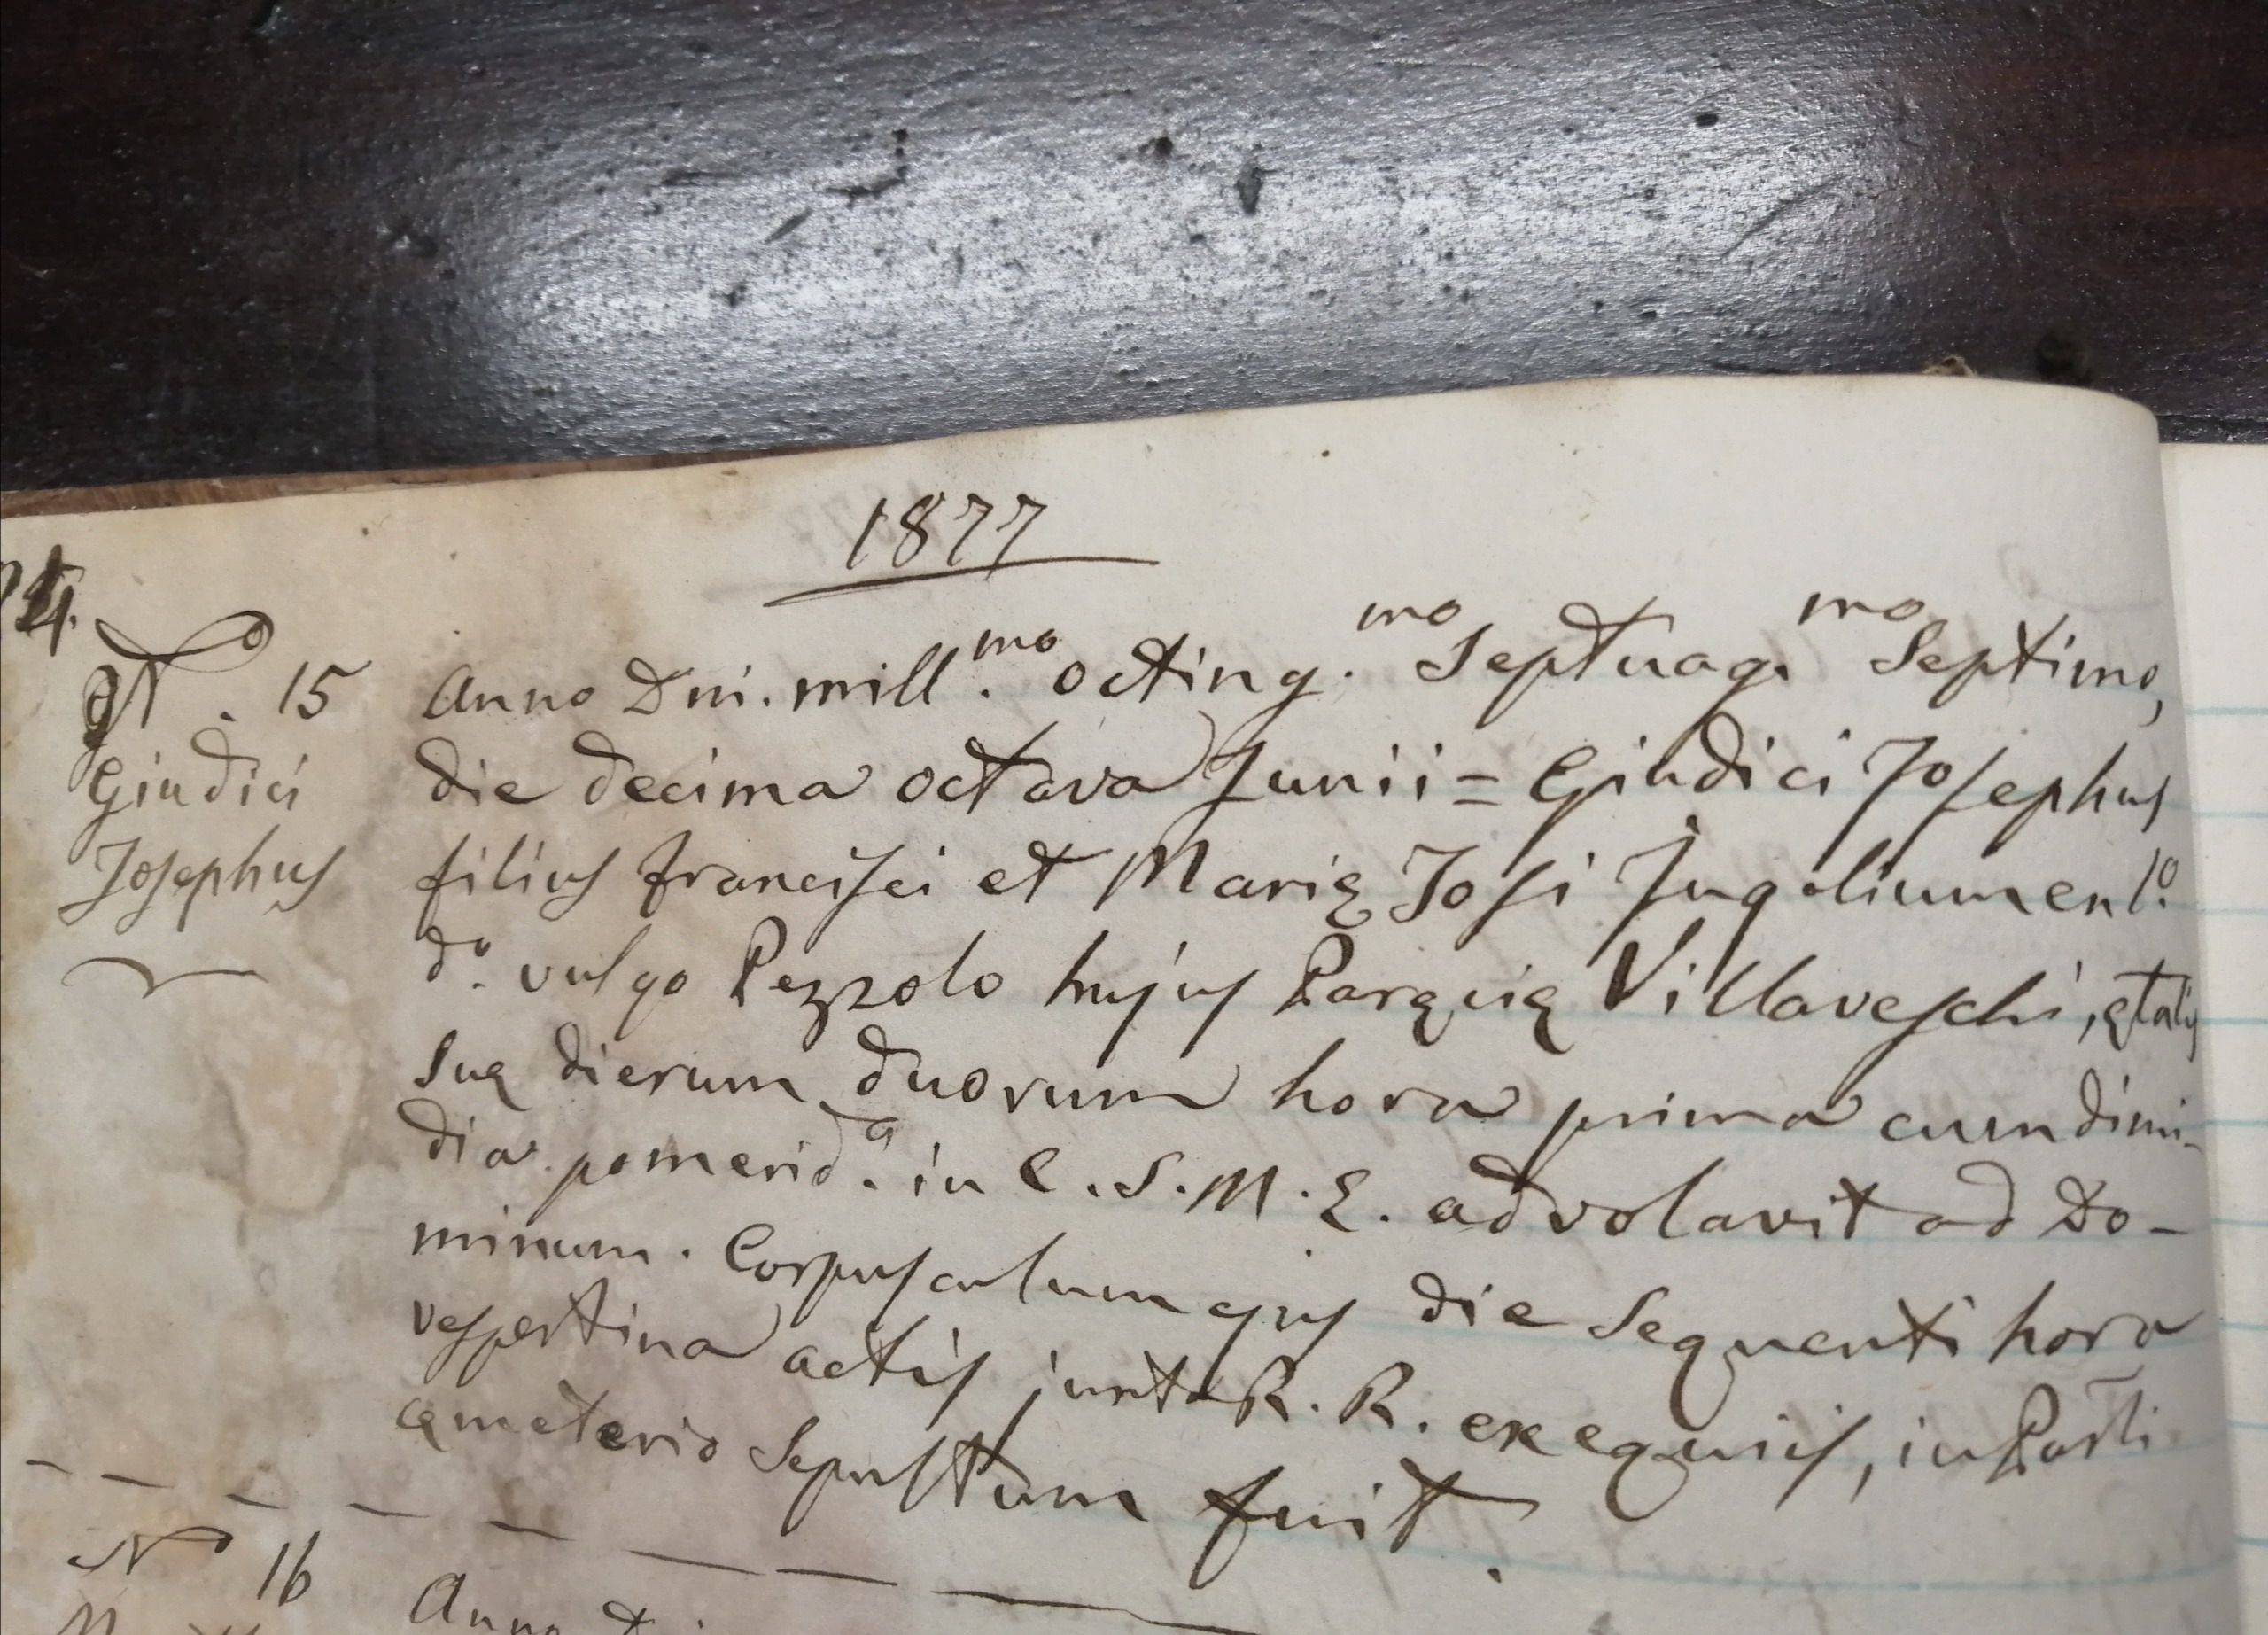 1877
4.
N.o 15
Giudici
Josephus
Anno Dni. mill.mo octing.mo Septuag.mo Septimo,
die decima octava Junii = Giudici Josephus
filius Francisci et Marię Josi Jugaliumen lo.
do. vulgo Pezzolo hujus Paręcię Villaveschi, ętatis
suę dierum duorum hora prima cum dimi-
dia pomerid.a in C. S. M. E. advolavit ad Do-
minum. Corpusculum ejus die sequenti hora
vespertina actis juxta R. R. exequiis, in Parli
cęmeterio Sepultum fuit.
No 16
Anno